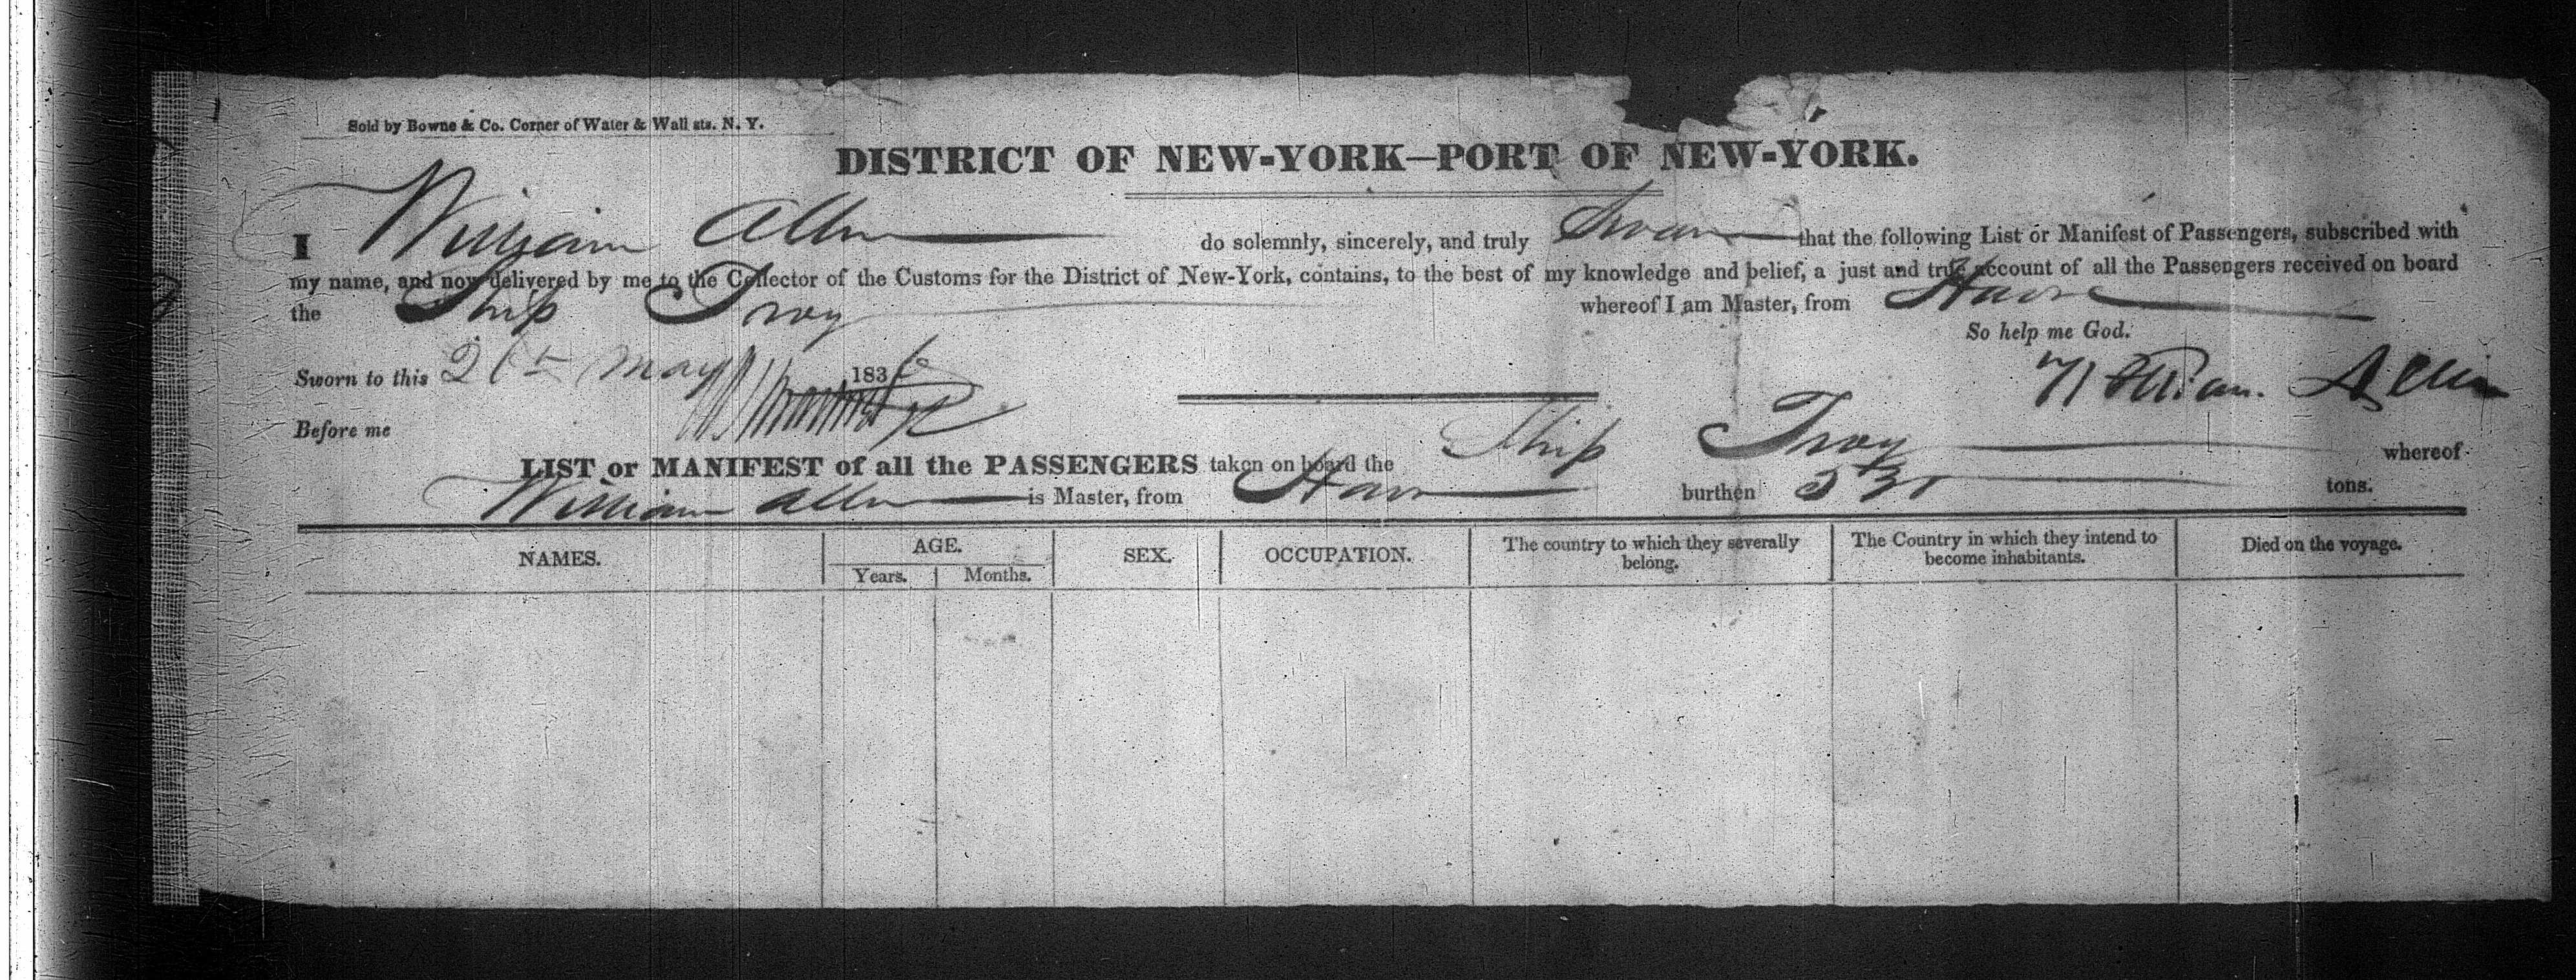 Sold by Bowne & Co. Corner of Water & Wall sts. N. Y.
DISTRICT OF NEW-YORK—PORT OF NEW-YORK.
I William Allen do solemnly, sincerely, and truly Swear that the following List or Manifest of Passengers, subscribed with
my name, and now delivered by me to the Collector of the Customs for the District of New-York, contains, to the best of my knowledge and belief, a just and true account of all the Passengers received on board
the Ship Troy whereof I am Master, from Havre
So help me God.
Sworn to this May 1836
William Allen
Before me
LIST or MANIFEST of all the PASSENGERS taken on board the Ship Troy whereof
William Allen is Master, from Havre burthen tons.
NAMES. AGE. SEX. OCCUPATION. The country to which they severally belong. The Country in which they intend to become inhabitants. Died on the voyage.
Years. Months.